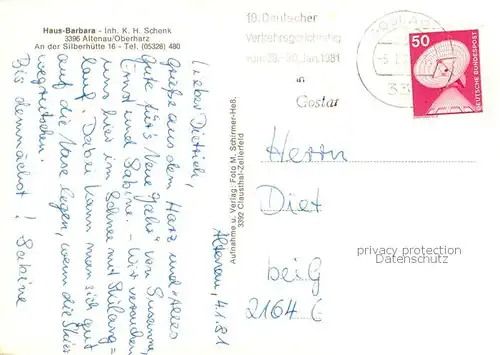 Haus-Barbara - Inh. K. H. Schenk
3396 Altenau/Oberharz
An der Silberhütte 16 - Tel. (05328) 480
Altenau, 4.1.81
Lieber Dietrich,
Grüße aus dem Harz und "Alles
Gute für's Neue Jahr" von Susanne,
Ernst und Sabine. - Wir versuchen
uns hier im Schnee mit Skilang=
lauf. Dabei kann man sich gut
auf die Nase legen, wenn die Skier
wegrutschen.
Bis demnächst! Sabine
Aufnahme u. Verlag: Foto M. Schirmer-Heß,
3392 Clausthal-Zellerfeld
19. Deutscher
Verkehrsgerichtstag
vom 28.-30. Jan. 1981
in
Goslar
50
DEUTSCHE BUNDESPOST
Herrn
Diet
bei G
2164
privacy protection
Datenschutz